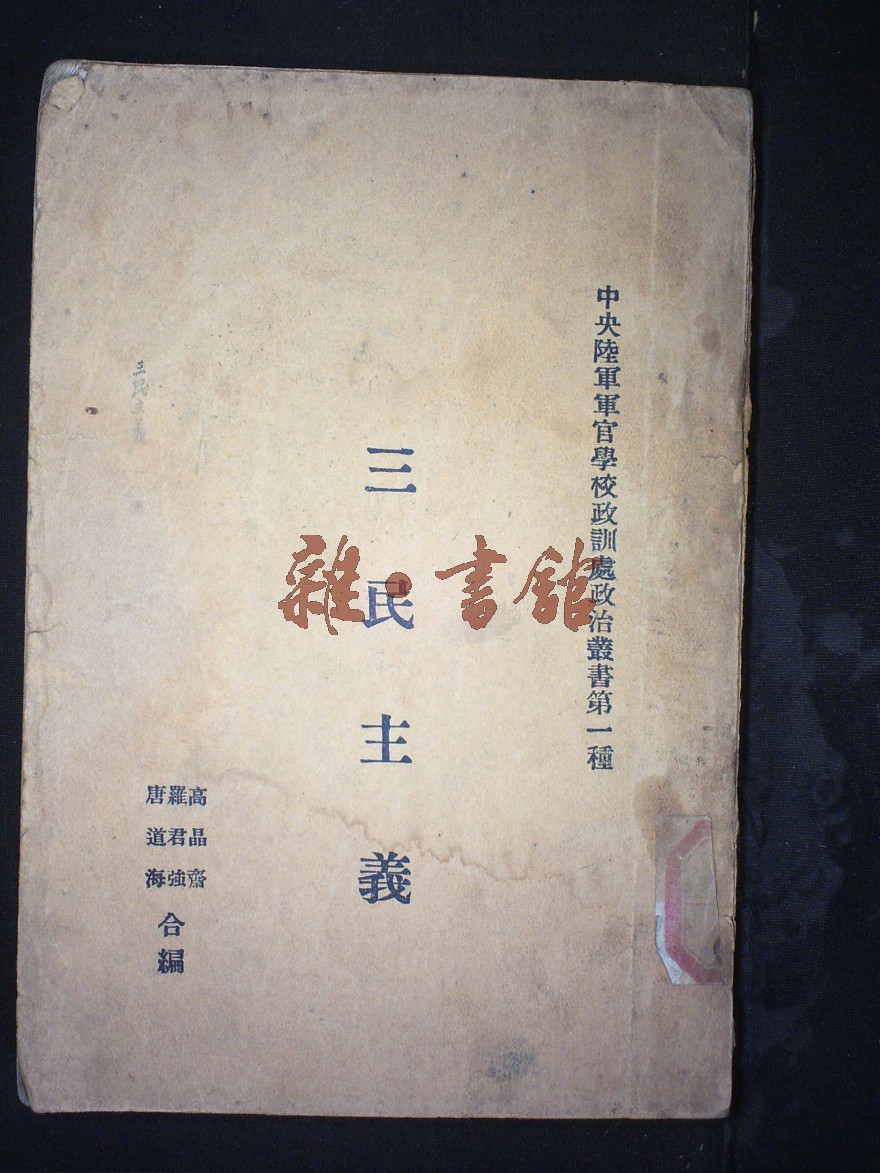 中央陸軍軍官學校政訓處政治叢書第一種
三民主義
高晶齋
羅君強
唐道海
合編
三民主義
雜·書館